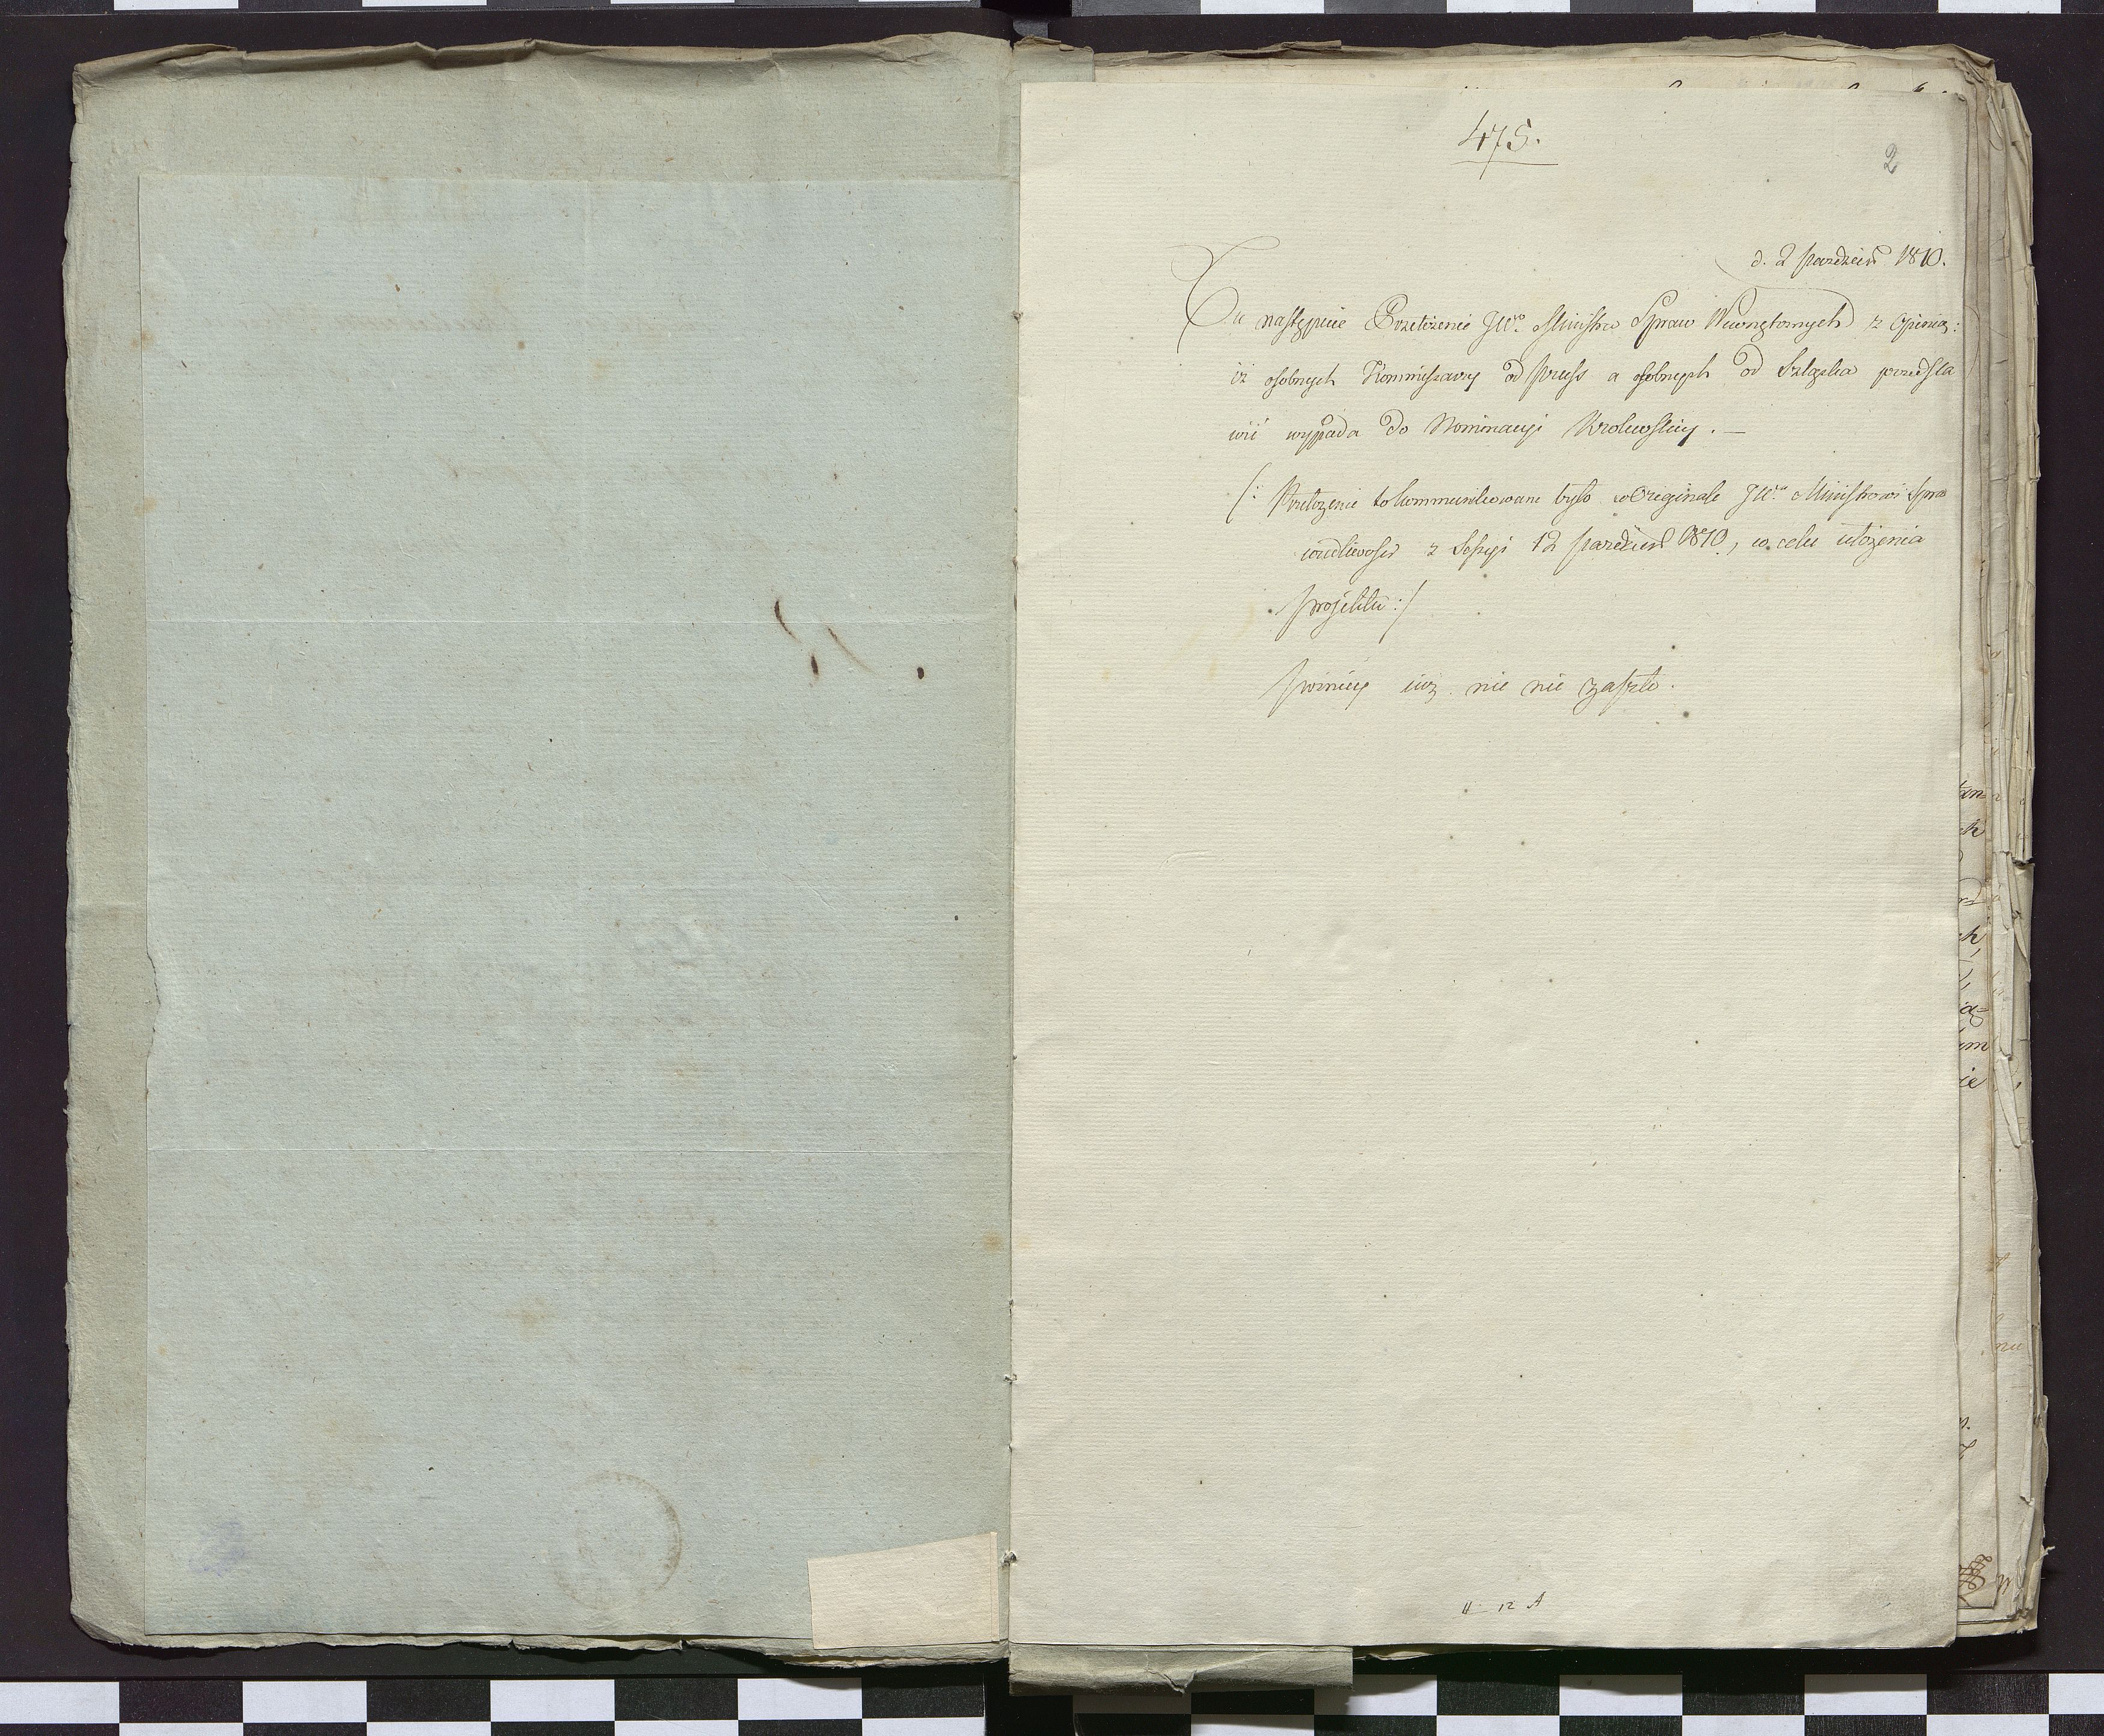 475.
2
d. 2 Pazdziern 1810.
Tu następuie Przełożenie JWo. Ministra Spraw Wewnętrznych z Opinią:
iż osobnych Kommissarzy od Pruss a osobnych od Szląska przedsta
wić wypada do Nominacyi Krolewskiey. —
/: Przełożenie to kommunikowane było w Originale JWu. Ministrowi Spra
wiedliwości z Sessyi 12 Pazdziern 1810, w celu ułożenia
projektu :/
Pozniey iuz nic nie zaszło.
II 12 A